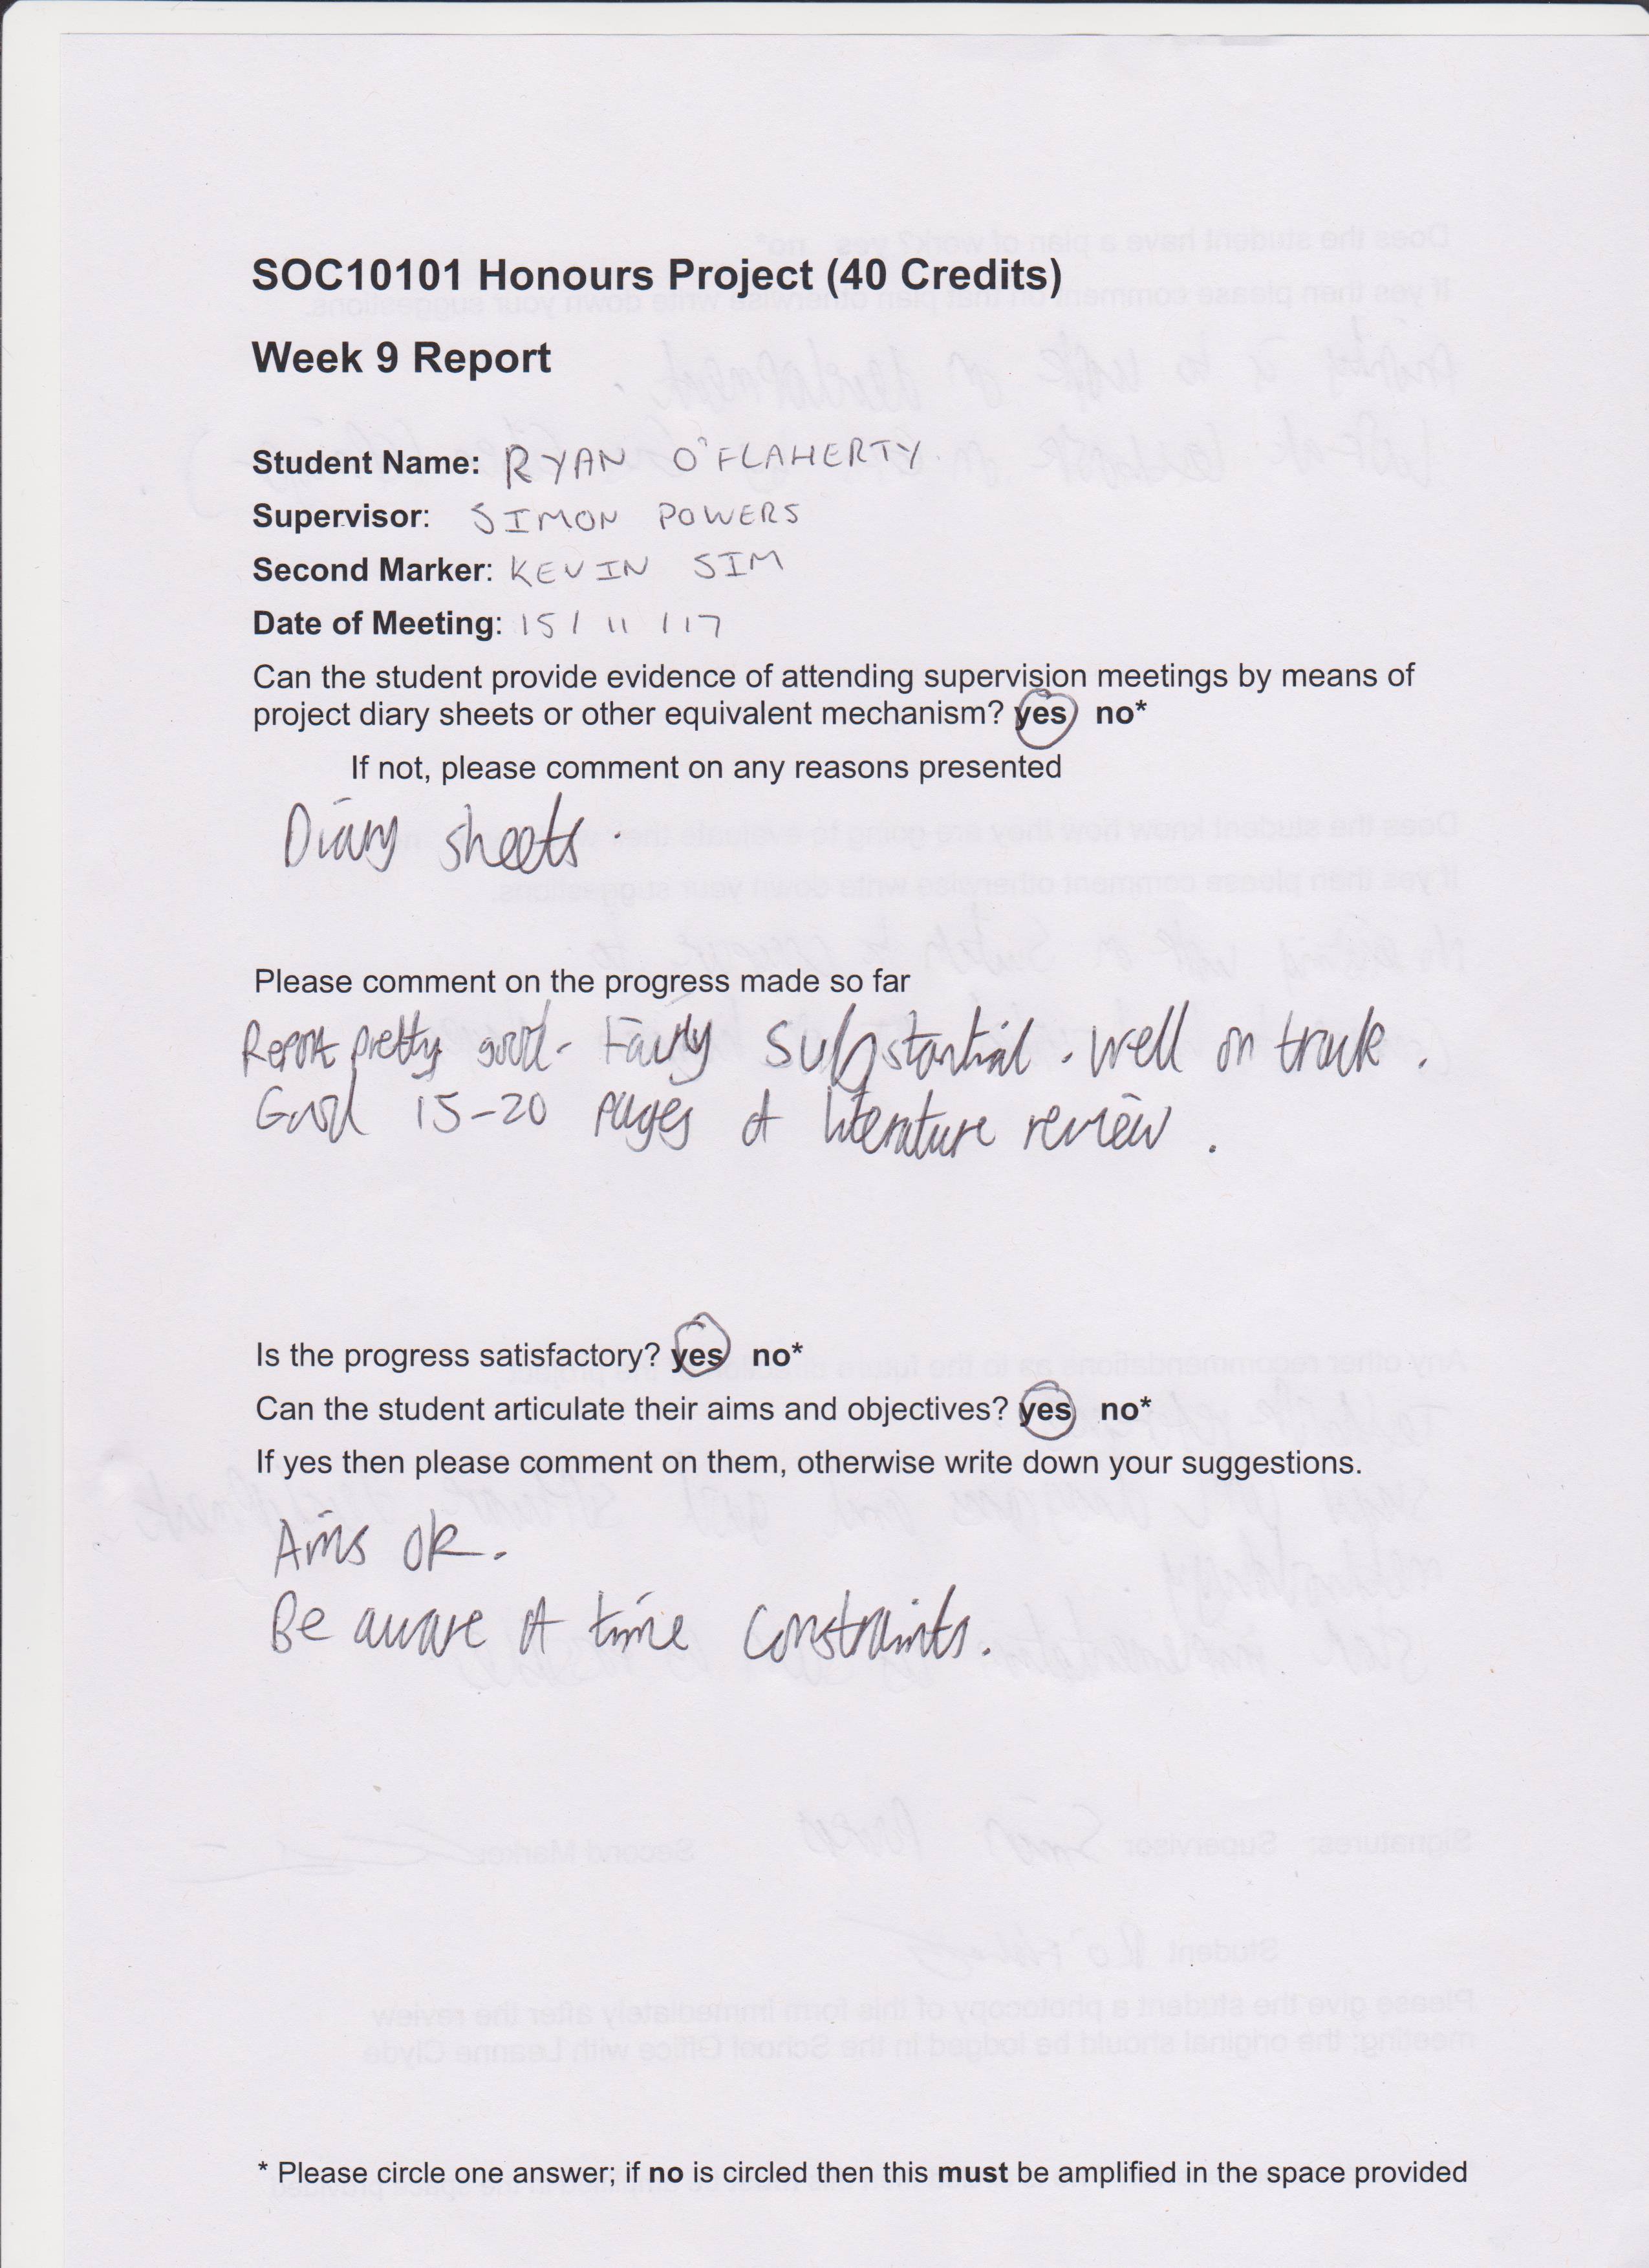 SOC10101 Honours Project (40 Credits)
Week 9 Report
Student Name: RYAN O'FLAHERTY.
Supervisor: SIMON POWERS
Second Marker: KEVIN SIM
Date of Meeting: 15 / 11 / 17
Can the student provide evidence of attending supervision meetings by means of
project diary sheets or other equivalent mechanism? yes no*
If not, please comment on any reasons presented
Diary sheets.
Please comment on the progress made so far
Report pretty good - Fairly substantial. Well on track.
Good 15-20 pages of literature review.
Is the progress satisfactory? yes no*
Can the student articulate their aims and objectives? yes no*
If yes then please comment on them, otherwise write down your suggestions.
Aims ok.
Be aware of time constraints.
* Please circle one answer; if no is circled then this must be amplified in the space provided